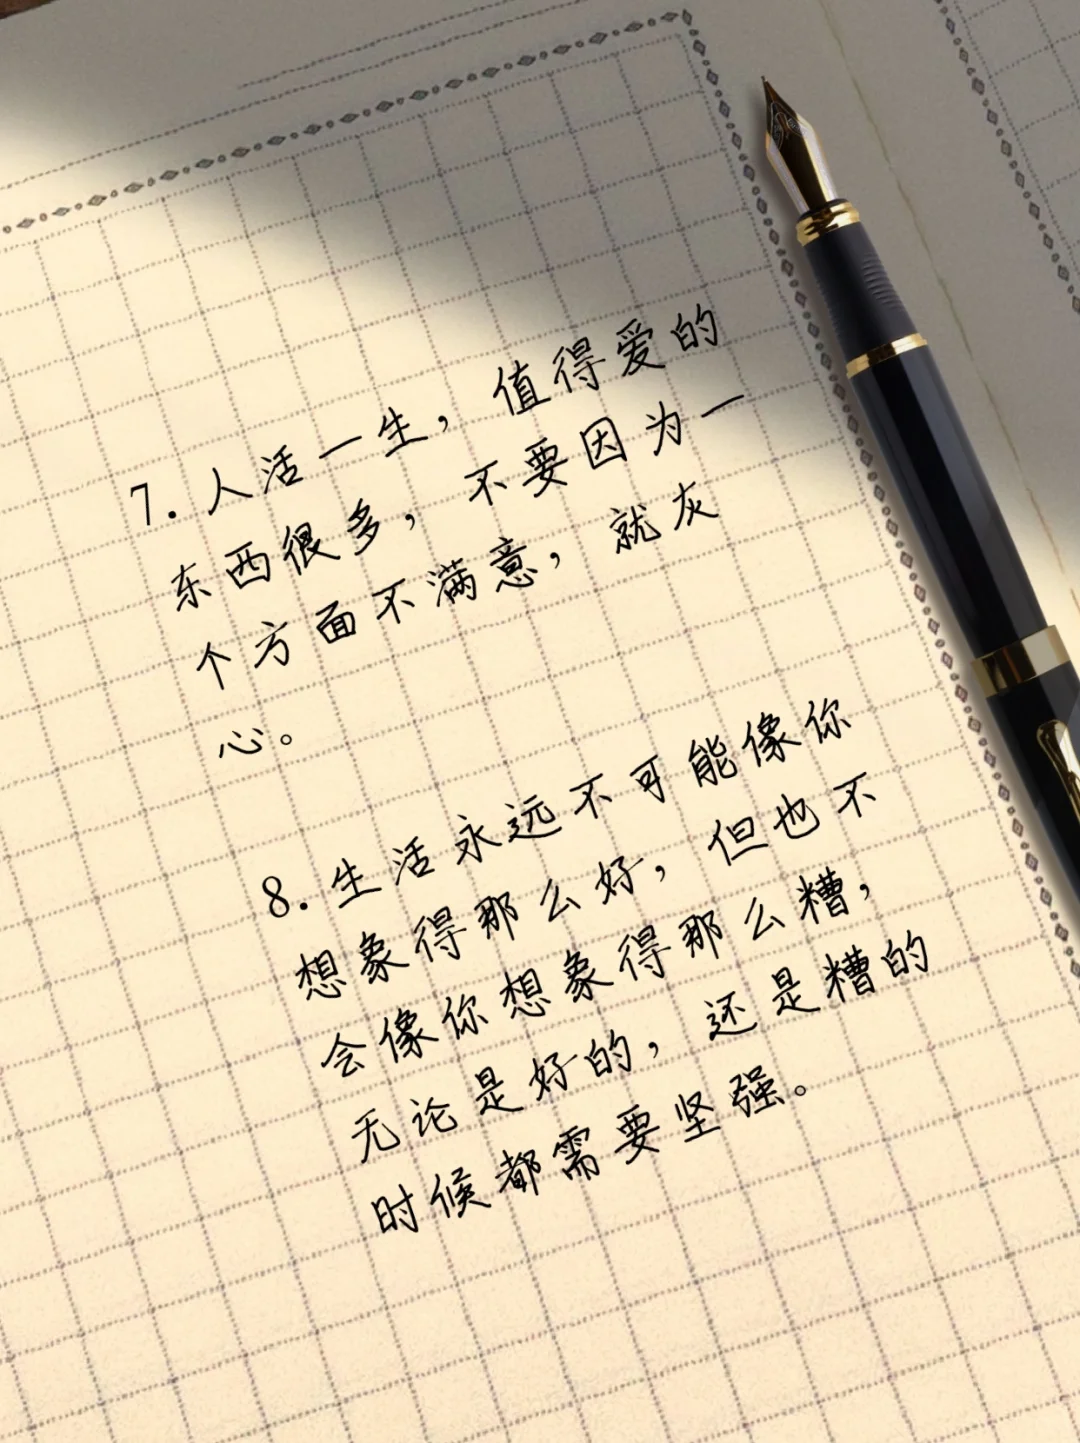 7.人活一生，值得爱的
东西很多，不要因为一
个方面不满意，就灰
心。
8.生活永远不可能像你
想象得那么好，但也不
会像你想象得那么糟，
无论是好的，还是糟的
时候都需要坚强。